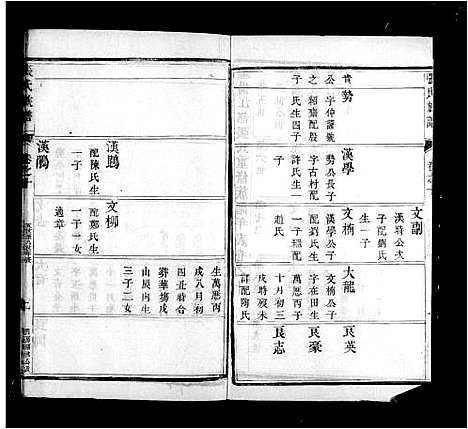 張氏族譜
文副
漢琦公次
子配劉氏
生一子
良英
貴
勢
公字仲謨號
之 頼齋配殷
子 氏生四子
漢學
勢公長子
字古村配
許氏生一
子
文楠
漢學公子
配劉氏生
一子 繼配
趙氏
大龍
文楠公子
字在田生
萬歷丙子
十月初三
戌時歿未
詳配陶氏
良豪
良志
生萬歷丙
戌八月初
四丑時合
葬華塲戌
山辰向生
三子二女
文柳
配鄭氏生
一子一女
適章
漢鵬
配陳氏生
一子二女
漢鵰
張氏族譜